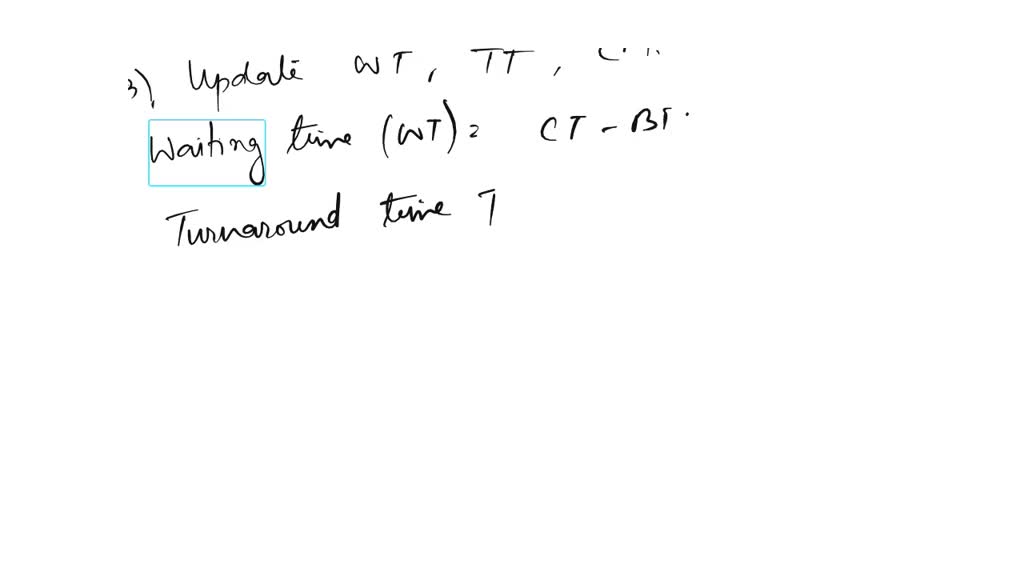 3) Update WT, TT,
Waiting time (WT) = CT - BT.
Turnaround time T